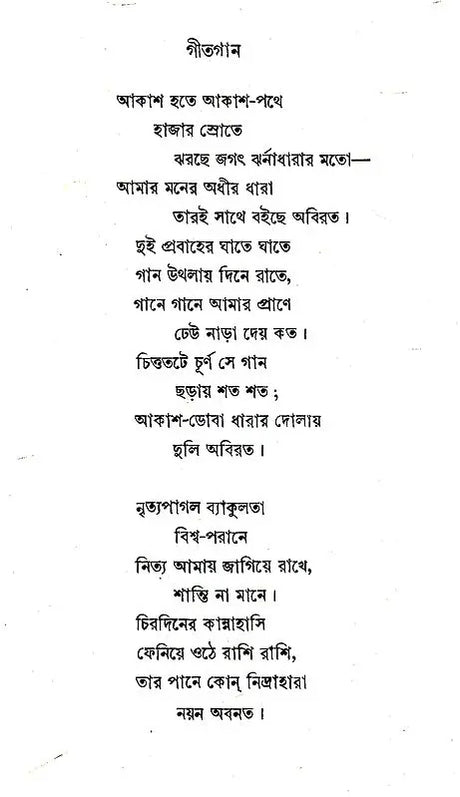 গীতগান
আকাশ হতে আকাশ-পথে
হাজার স্রোতে
ঝরছে জগৎ ঝর্নাধারার মতো—
আমার মনের অধীর ধারা
তারই সাথে বইছে অবিরত।
দুই প্রবাহের ঘাতে ঘাতে
গান উথলায় দিনে রাতে,
গানে গানে আমার প্রাণে
ঢেউ নাড়া দেয় কত।
চিত্ততটে চূর্ণ সে গান
ছড়ায় শত শত;
আকাশ-ডোবা ধারার দোলায়
দুলি অবিরত।
নৃত্যপাগল ব্যাকুলতা
বিশ্ব-পরানে
নিত্য আমায় জাগিয়ে রাখে,
শান্তি না মানে।
চিরদিনের কান্নাহাসি
ফেনিয়ে ওঠে রাশি রাশি,
তার পানে কোন্ নিদ্রাহারা
নয়ন অবনত।